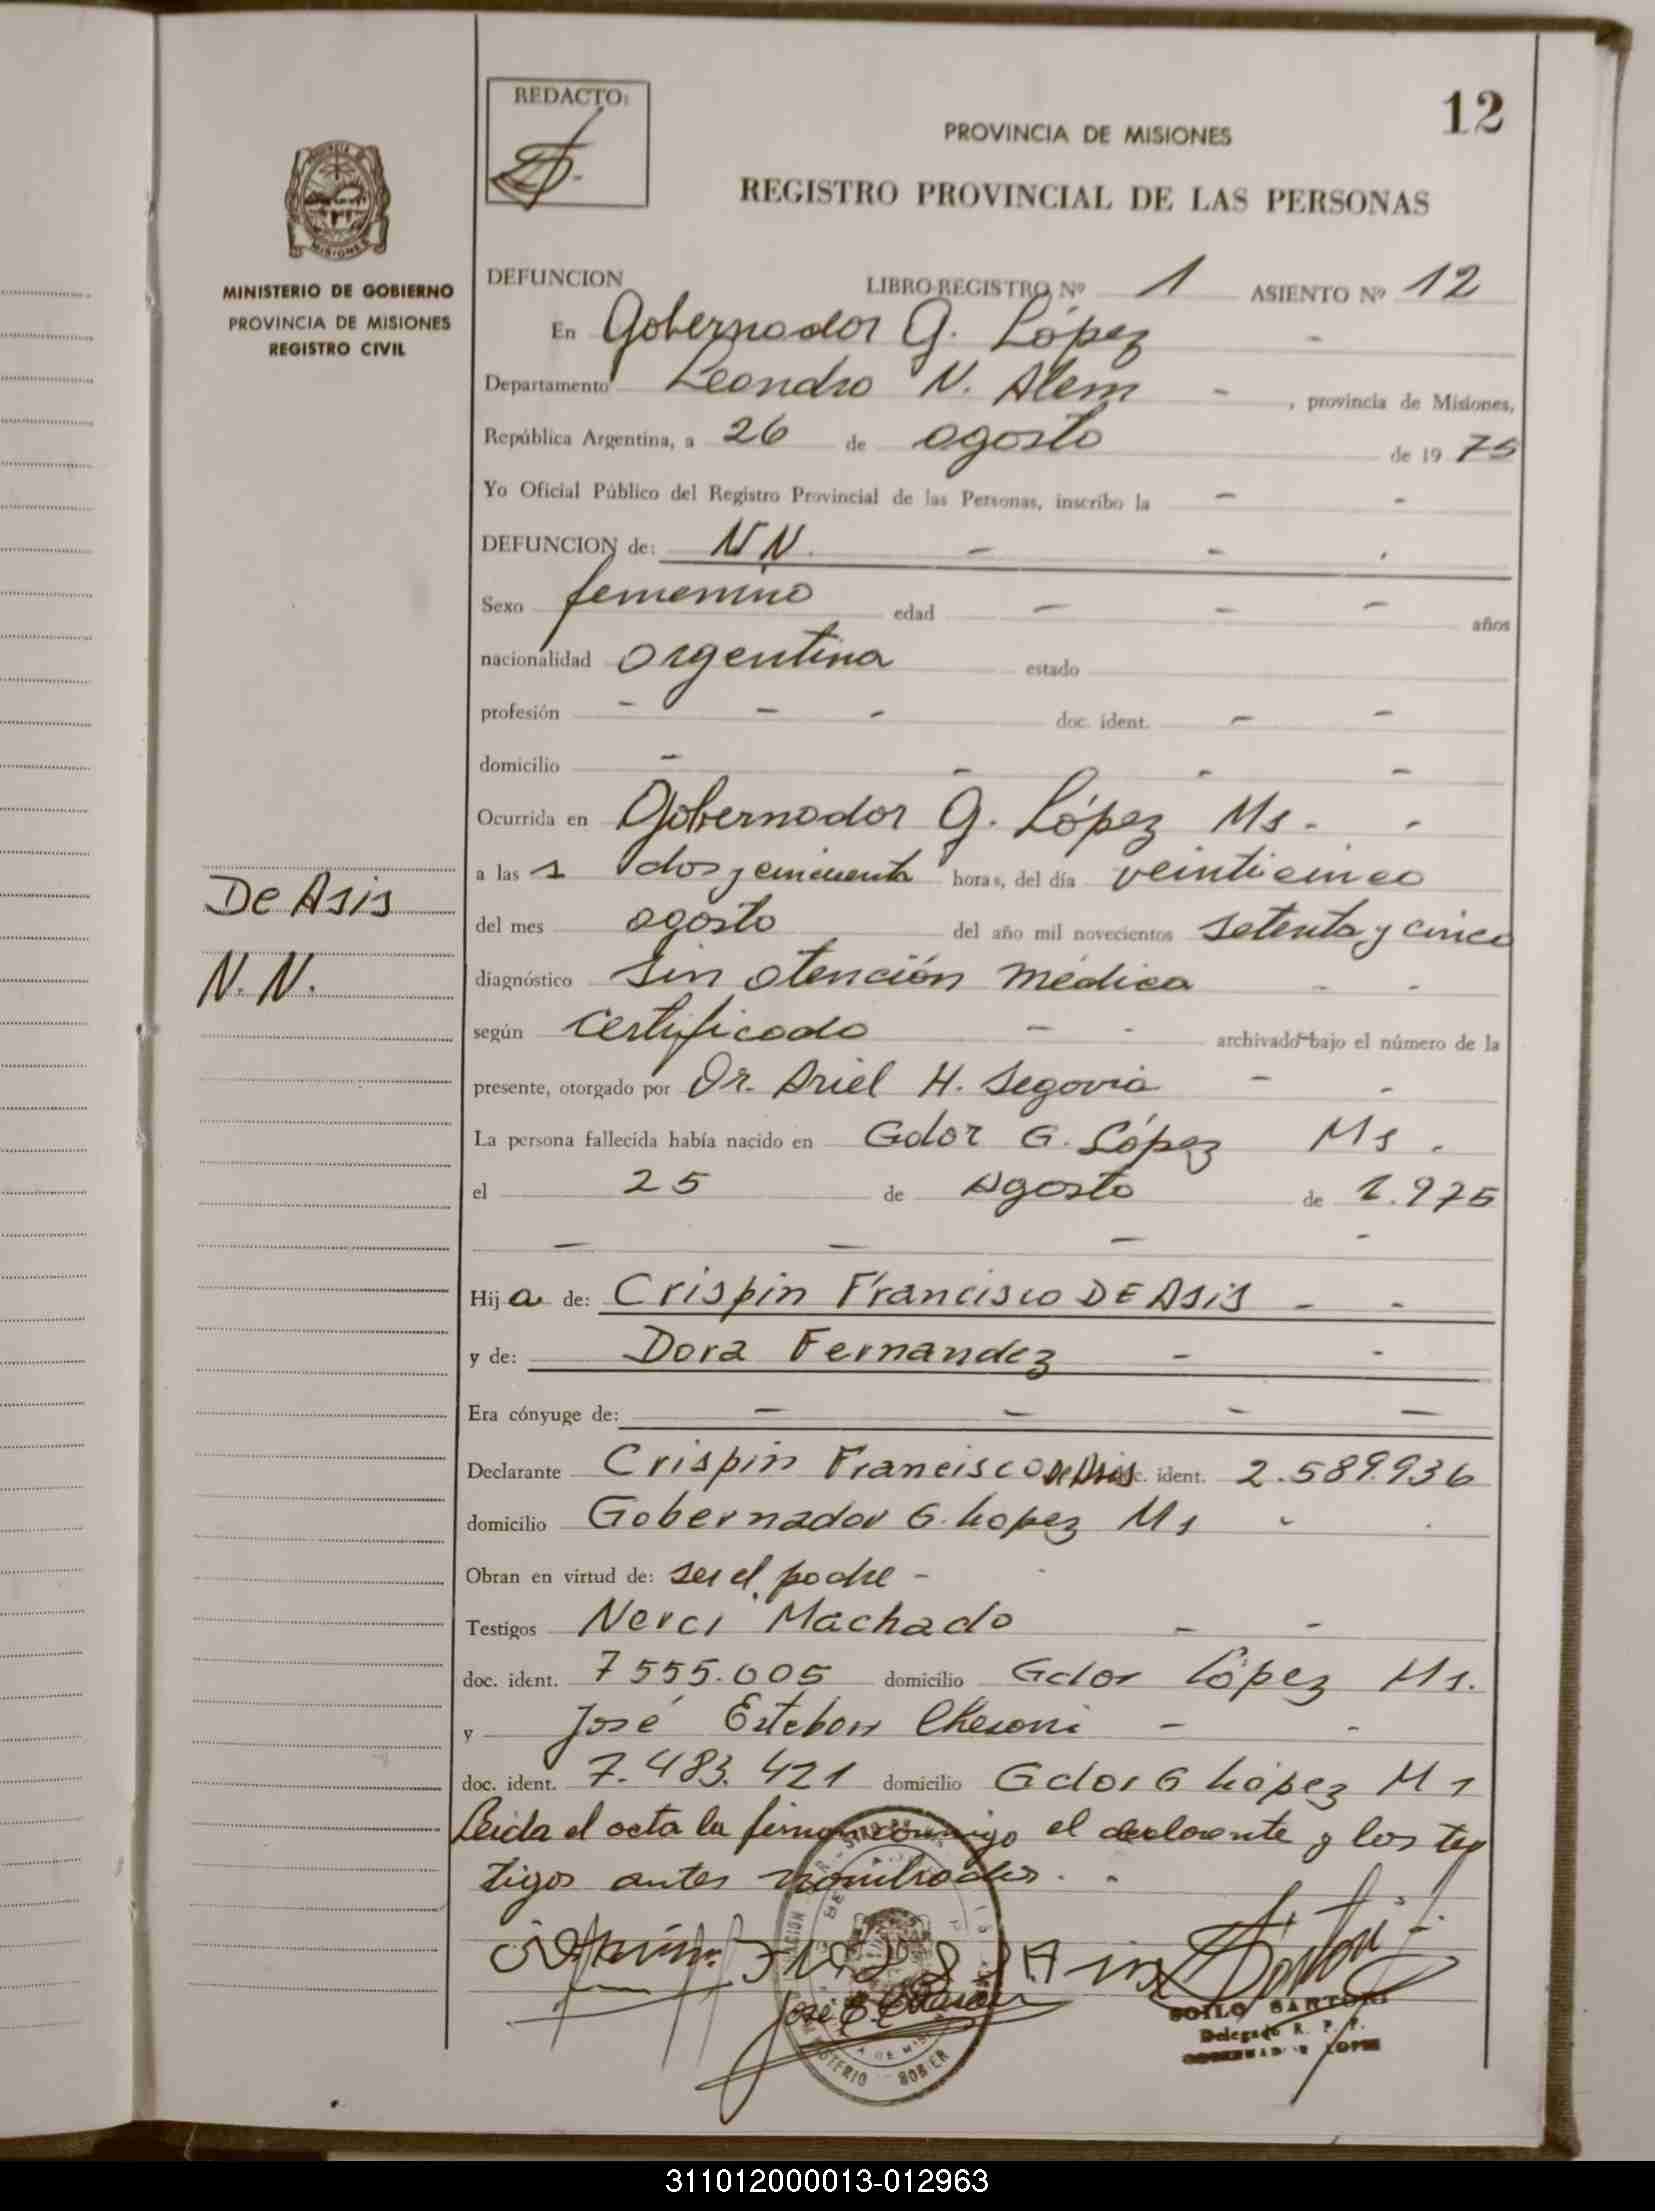 REDACTO:
12
PROVINCIA DE MISIONES
REGISTRO PROVINCIAL DE LAS PERSONAS
MINISTERIO DE GOBIERNO
PROVINCIA DE MISIONES
REGISTRO CIVIL
DEFUNCION LIBRO REGISTRO Nº 1 ASIENTO Nº 12
En Gobernador G. López -
Departamento Leandro N. Alem - , provincia de Misiones,
República Argentina, a 26 de agosto de 1975
Yo Oficial Público del Registro Provincial de las Personas, inscribo la - -
DEFUNCION de: NN. - - .
Sexo femenino edad - - - años
nacionalidad argentina estado
profesión - - - doc. ident. - -
domicilio - - - -
Ocurrida en Gobernador G. López Ms. -
a las 1 dos y cincuenta horas, del día veinticinco
De Asis
del mes agosto del año mil novecientos setenta y cinco
N. N.
diagnóstico sin atención médica - -
según certificado - - archivado bajo el número de la
presente, otorgado por Dr. Ariel H. Segovia - -
La persona fallecida había nacido en Gdor G. López Ms.
el 25 de Agosto de 1.975
- - - -
Hija de: Crispin Francisco DE Asis - -
y de: Dora Fernandez - -
Era cónyuge de: - - - -
Declarante Crispin Francisco de Asis doc. ident. 2.589.936
domicilio Gobernador G. Lopez Ms - .
Obran en virtud de: ser el padre -
Testigos Nerci Machado - -
doc. ident. 7555.005 domicilio Gdor López Ms.
y José Esteban - -
doc. ident. 7.483.421 domicilio Gdor G López Ms
Leida el acta la firman conmigo el declarente y los tes
tigos antes nombrados. -
SOILO SARTORI
Delegado R. P. P.
GOBERNADOR LOPEZ
311012000013-012963